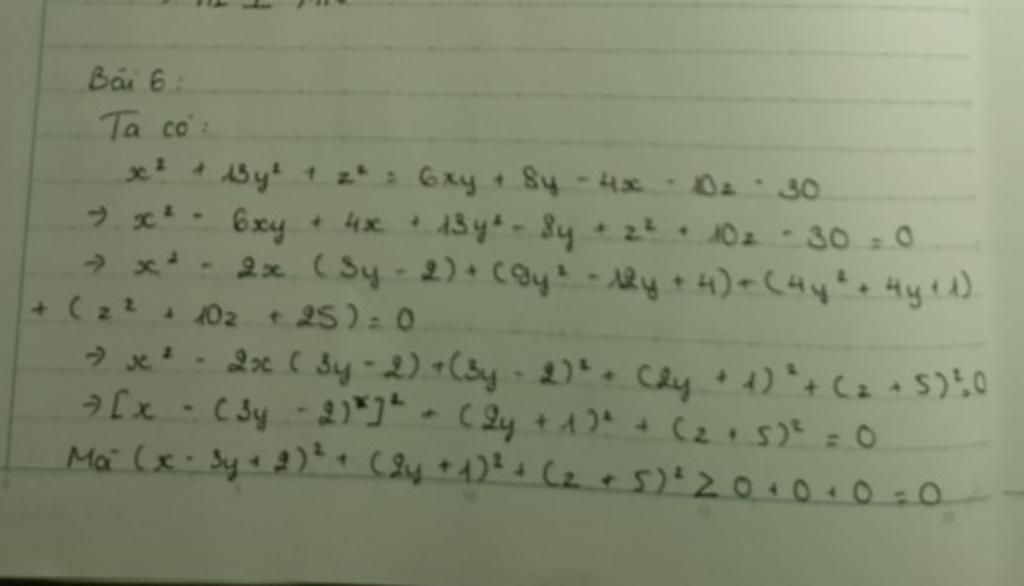 Bài 6:
Ta có:
x² + 13y² + z² = 6xy + 8y - 4x - 10z - 30
→ x² - 6xy + 4x + 13y² - 8y + z² + 10z - 30 = 0
→ x² - 2x (3y - 2) + (9y² - 12y + 4) + (4y² + 4y + 1)
+ (z² + 10z + 25) = 0
→ x² - 2x (3y - 2) + (3y - 2)² + (2y + 1)² + (z + 5)² = 0
→ [x - (3y - 2)]² + (2y + 1)² + (z + 5)² = 0
Mà (x - 3y + 2)² + (2y + 1)² + (z + 5)² ≥ 0 + 0 + 0 = 0